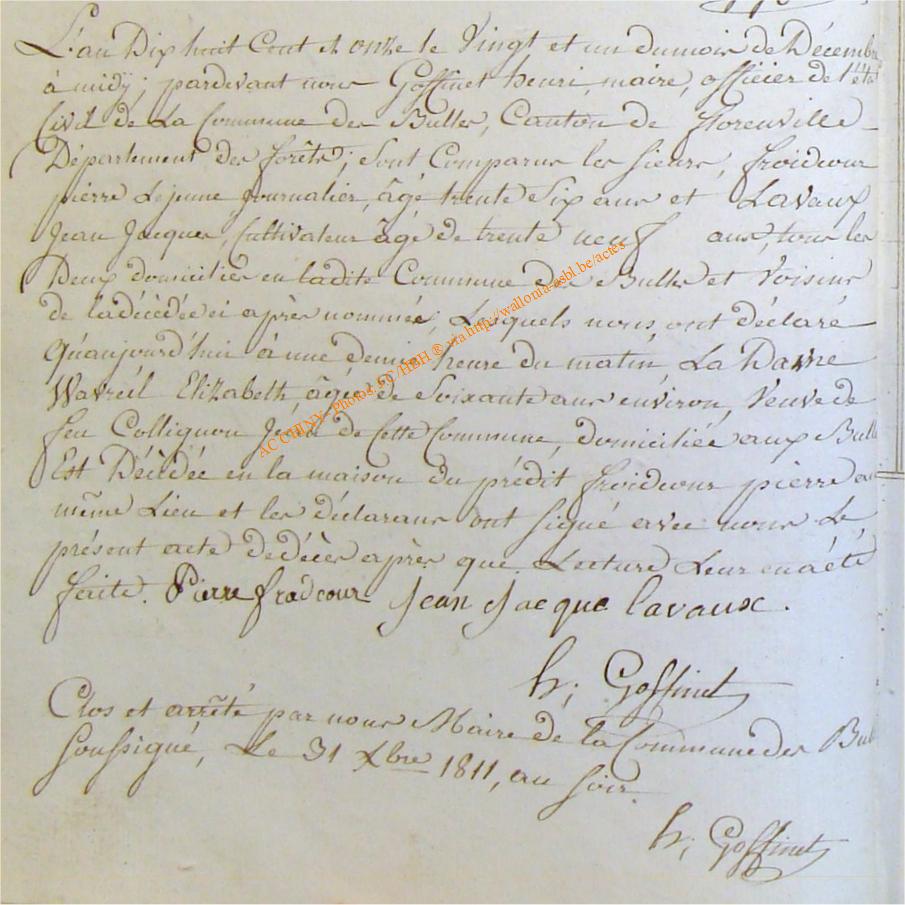 L'an Dix huit Cent et onze le Vingt et un du mois de Décembre
à midy; pardevant nous Goffinet henri, maire, officier de l'état
Civil de La Commune des Bulles, Canton de florenville
Département des forêts; sont Comparus les sieurs, froidcour
pierre Lejeune, Journalier, âgé trente Six ans et Lavaux
Jean Jacques, Cultivateur âgé de trente neuf ans, tous les
Deux domiciliés en ladite Commune des Bulles et Voisins
de la décédée ci après nommée, Lesquels nous ont déclaré
Qu'aujourd'hui à une demie heure du matin, La Dame
Wavreil Elizabeth, âgée de Soixante ans environ, Veuve de
feu Collignon de Cette Commune, domiciliée aux Bulles
Est Décédée en la maison du prédit froidcour pierre au
même Lieu et les déclarans ont signé avec nous Le
présent acte de décès après que Lecture Leur en a été
faite. Pierre fradcour Jean Jacque lavaux.
h; Goffinet
Clos et arrêté par nous Maire de la Commune des Bulles
Soussigné, Le 31 Xbre 1811, au soir.
h; Goffinet
ACCHINY Photos JC/HBH ® via http://wallonia-asbl.be/actes